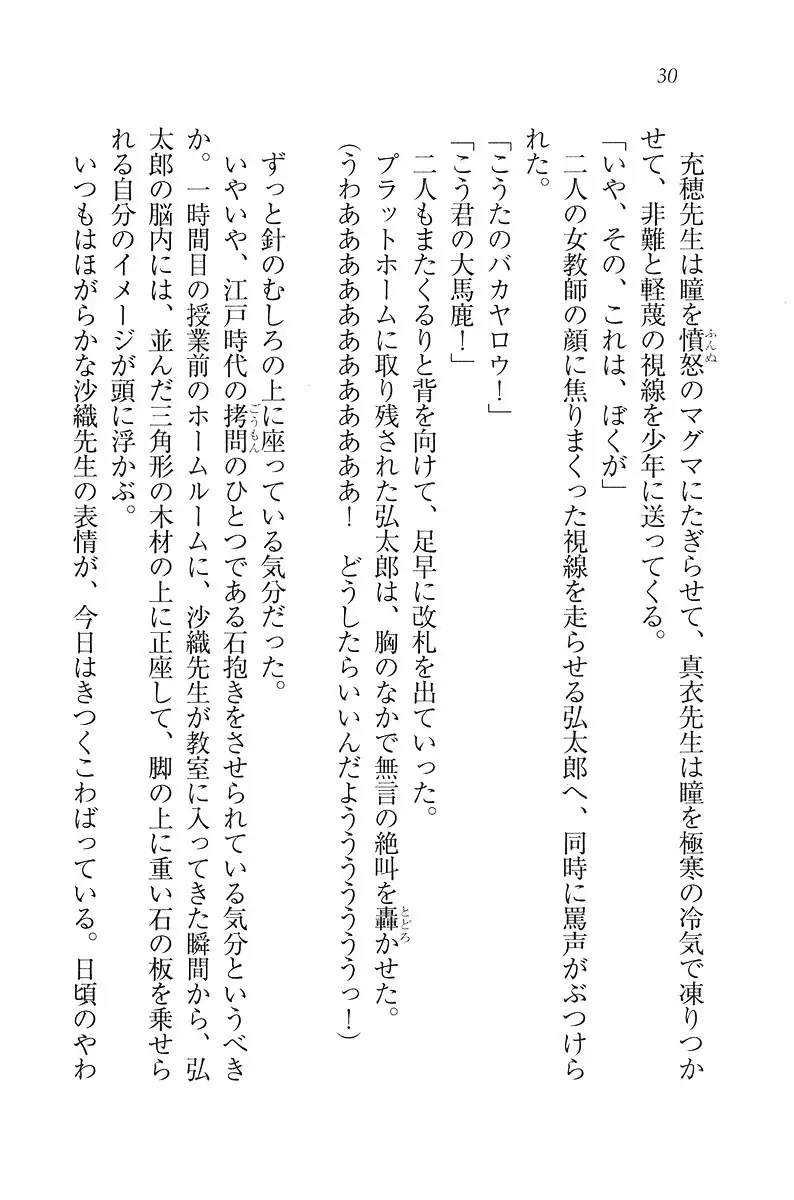 30
充穂先生は瞳を憤怒のマグマにたぎらせて、真衣先生は瞳を極寒の冷気で凍りつか
せて、非難と軽蔑の視線を少年に送ってくる。
「いや、その、これは、ぼくが」
二人の女教師の顔に焦りまくった視線を走らせる弘太郎へ、同時に罵声がぶつけら
れた。
「こうたのバカヤロウ！」
「こう君の大馬鹿！」
二人もまたくるりと背を向けて、足早に改札を出ていった。
プラットホームに取り残された弘太郎は、胸のなかで無言の絶叫を轟かせた。
(うわあああああああああああああ！　どうしたらいいんだよううううううっ！)
ずっと針のむしろの上に座っている気分だった。
いやいや、江戸時代の拷問のひとつである石抱きをさせられている気分というべき
か。一時間目の授業前のホームルームに、沙織先生が教室に入ってきた瞬間から、弘
太郎の脳内には、並んだ三角形の木材の上に正座して、脚の上に重い石の板を乗せら
れる自分のイメージが頭に浮かぶ。
いつもはほがらかな沙織先生の表情が、今日はきつくこわばっている。日頃のやわ